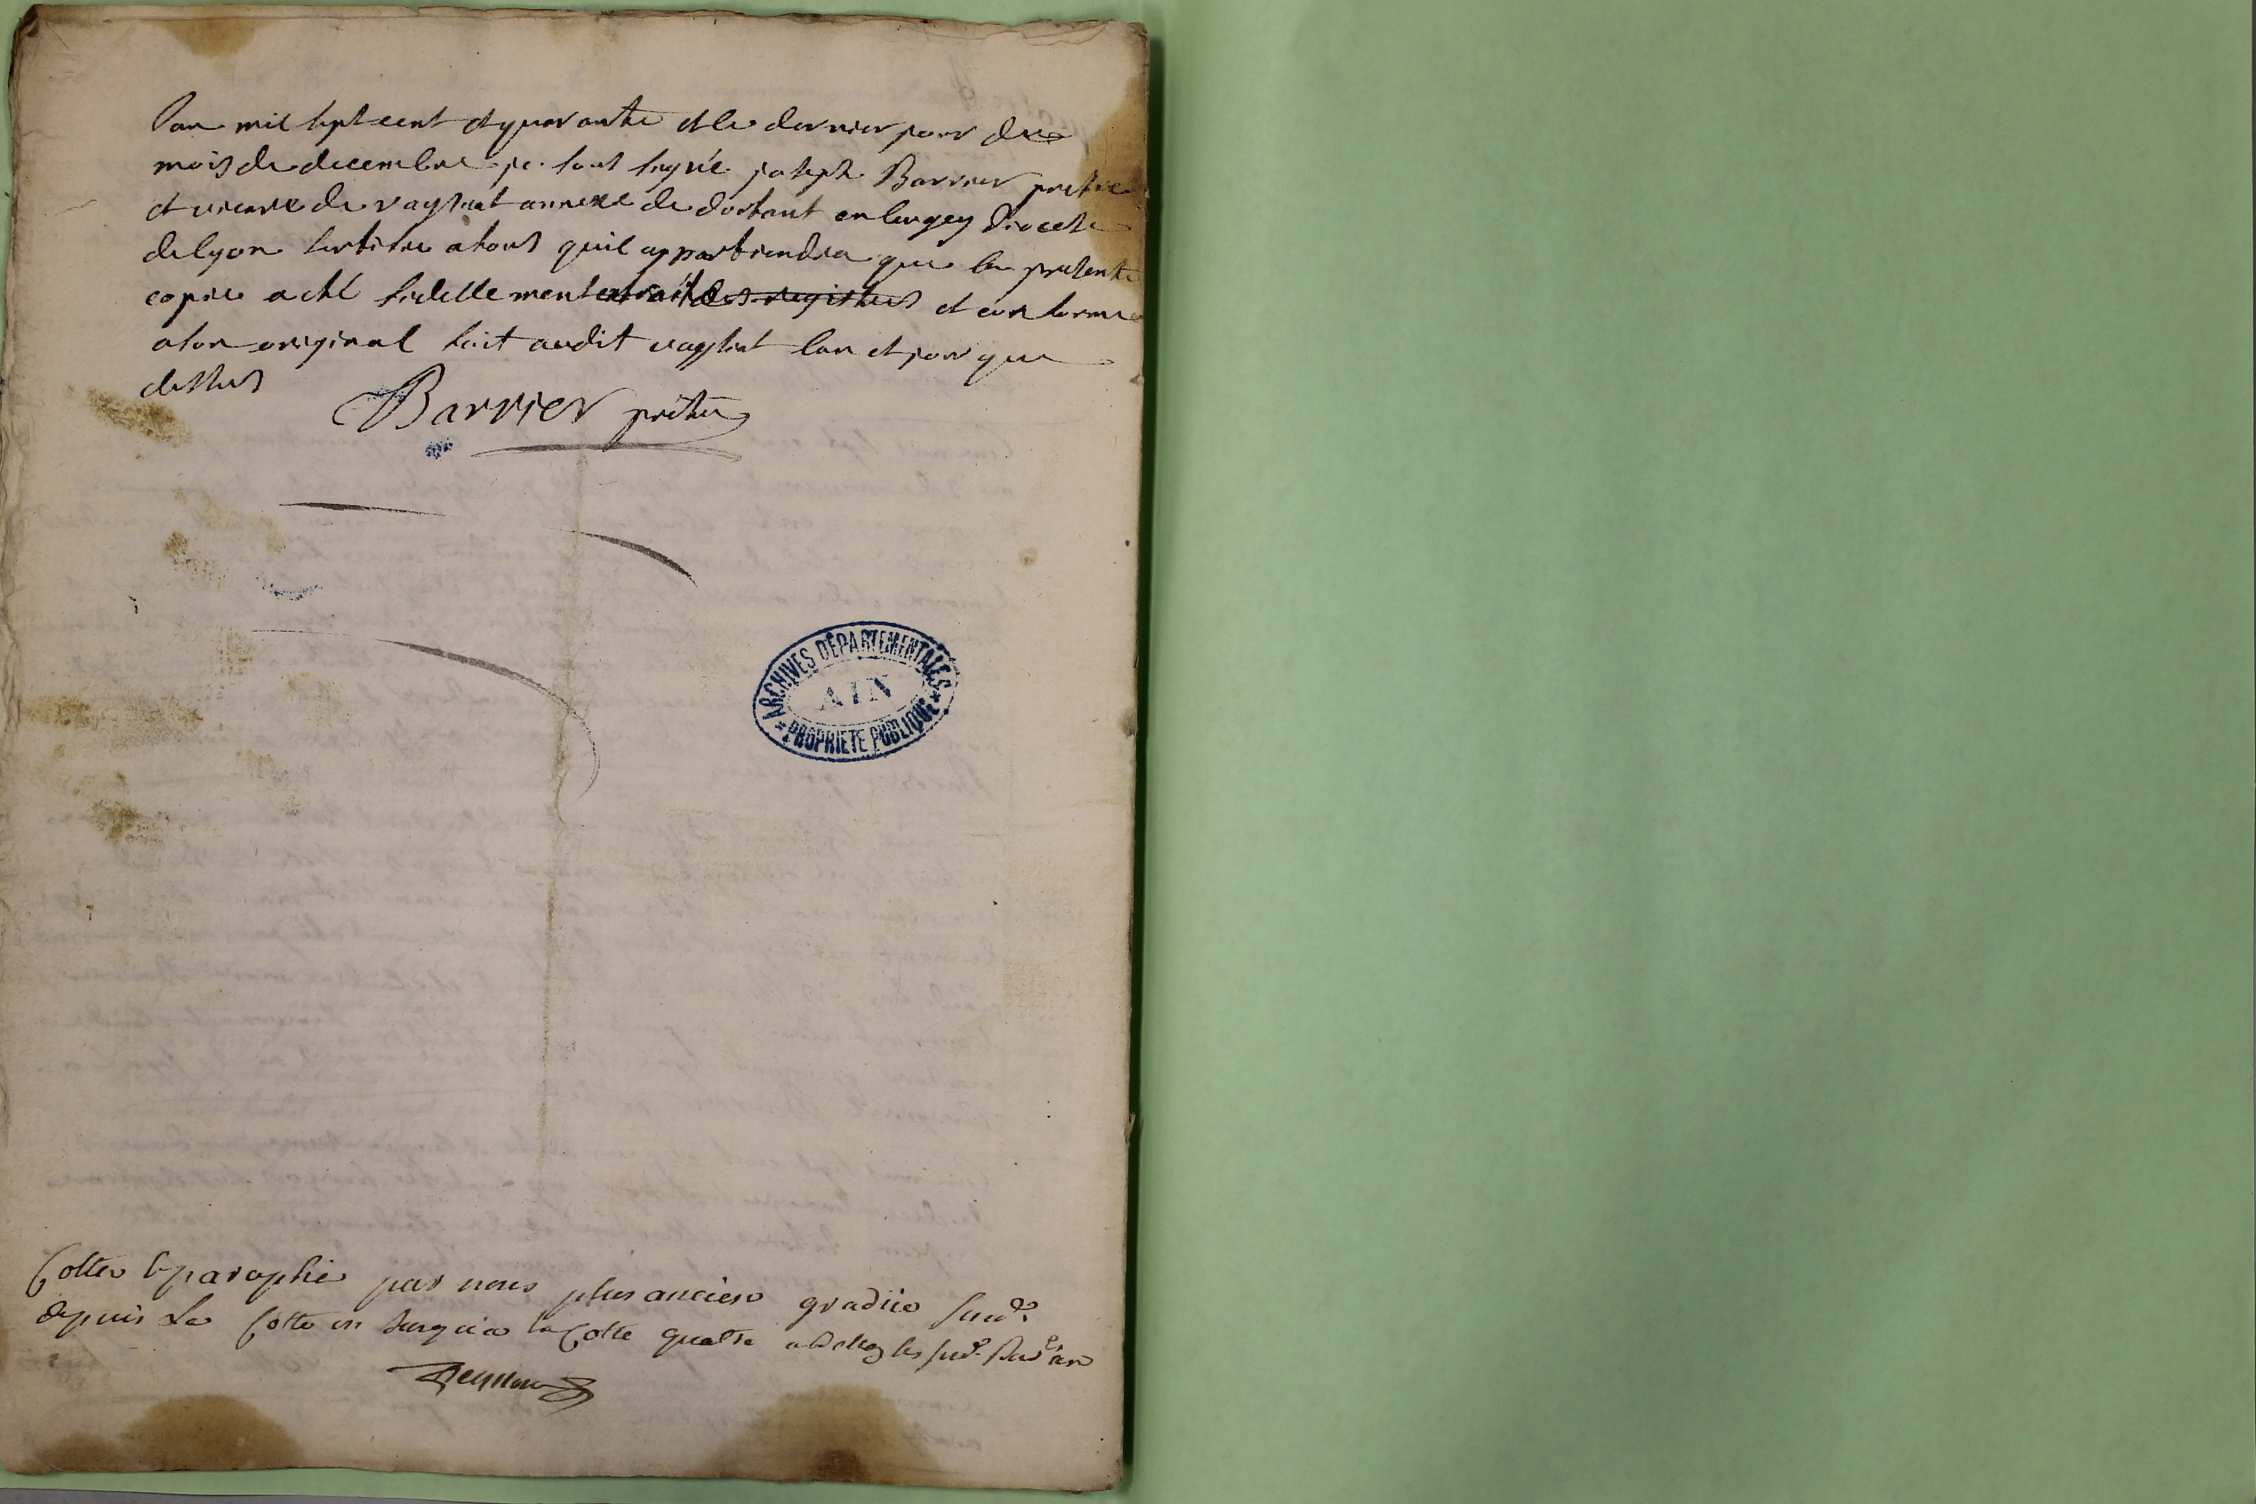 Lan mil sept cent et quarante et le dernier jour du
mois de decembre je sous signé joseph Barrier pretre
et vicaire de vaysiat annexe de dortant en bugey diocese
de lyon certifie a tous quil appartiendra que la presente
copie a eté fidellement extrait des registres et conforme
a son original fait audit vaysiat lan et jour que
dessus
Barrier prêtre
ARCHIVES DÉPARTEMENTALES
AIN
PROPRIETE PUBLIQUE
Cotté & paraphé par nous plus ancien gradué
depuis la Cotte un jusqu'a la Cotte quatre